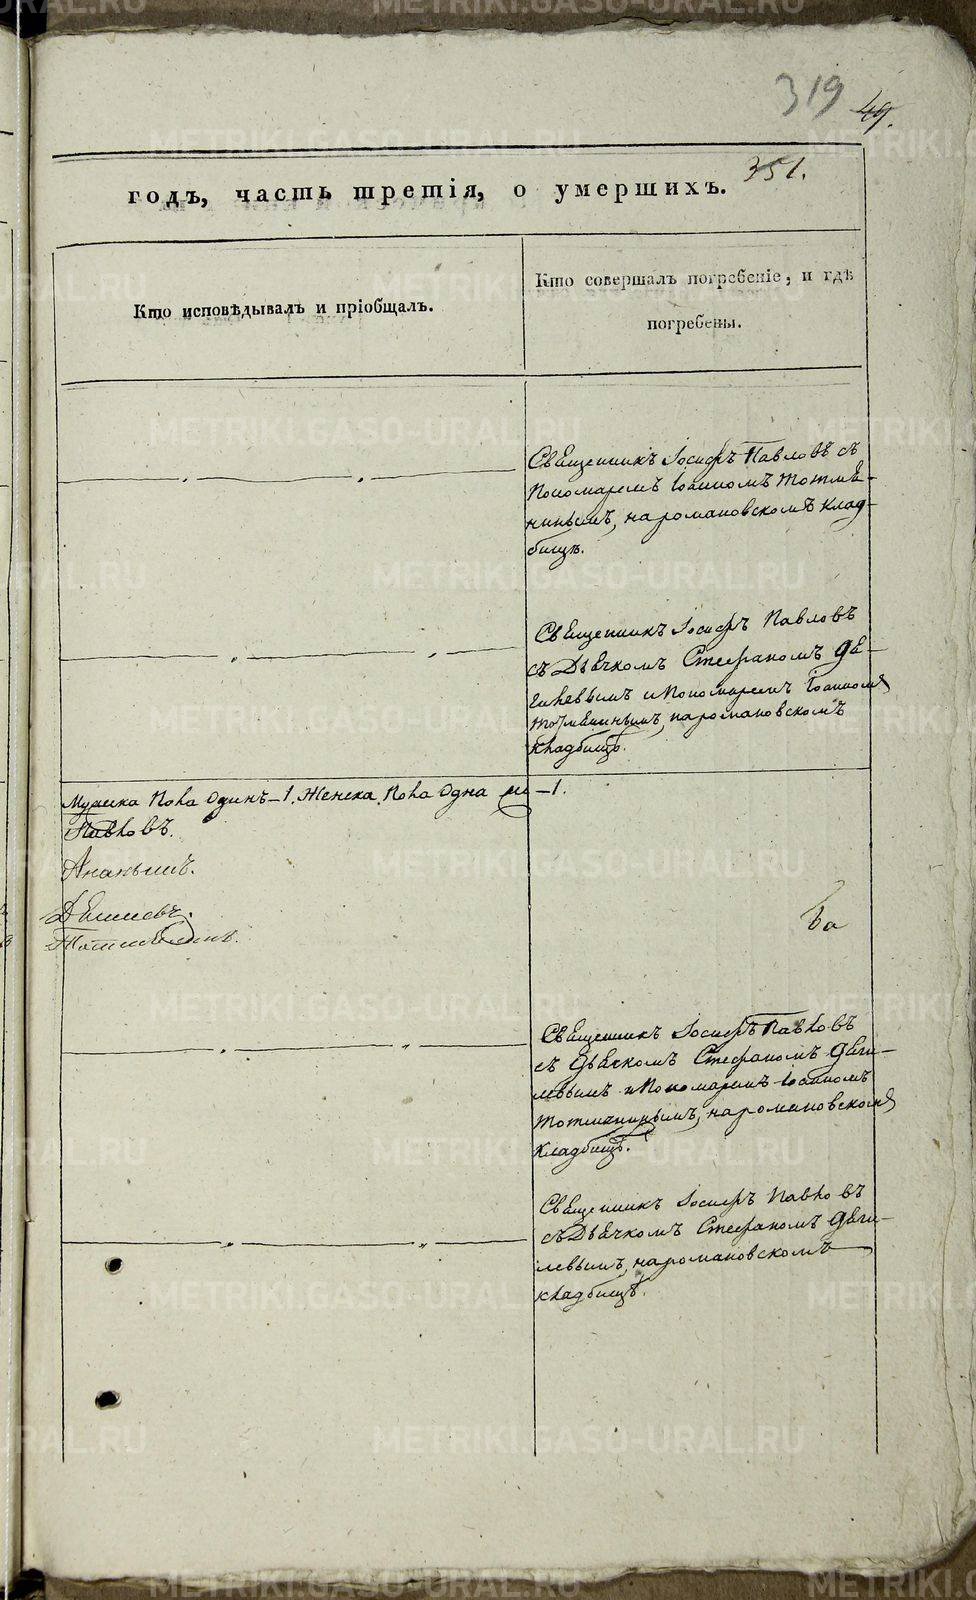 319 49.
351.
годъ, часть третія, о умершихъ.
Кто исповѣдывалъ и пріобщалъ.
Кто совершалъ погребеніе, и гдѣ
погребены.
Священникъ Іосифъ Павловъ съ
Пономаремъ Іоанномъ Тотмѣ-
нинымъ, наромановскомъ клад-
бищѣ.
Священникъ Іосифъ Павловъ
съ Дьячкомъ Стефаномъ Дѣ-
гилевымъ и Пономаремъ Іоанномъ
Тотмѣнинымъ, наромановскомъ
кладбищѣ.
Мужска пола одинъ – 1. Женска пола одна – 1.
Павловъ.
Ананьинъ.
Священникъ Іосифъ Павловъ
съ дьячкомъ Стефаномъ Дѣги-
левымъ и Пономаремъ Іоанномъ
Тотменинымъ, наромановскомъ
кладбищѣ.
Священникъ Іосифъ Павловъ
съ Дьячкомъ Стефаномъ Дѣги-
левымъ, наромановскомъ
кладбищѣ.
METRIKI.GASO-URAL.RU